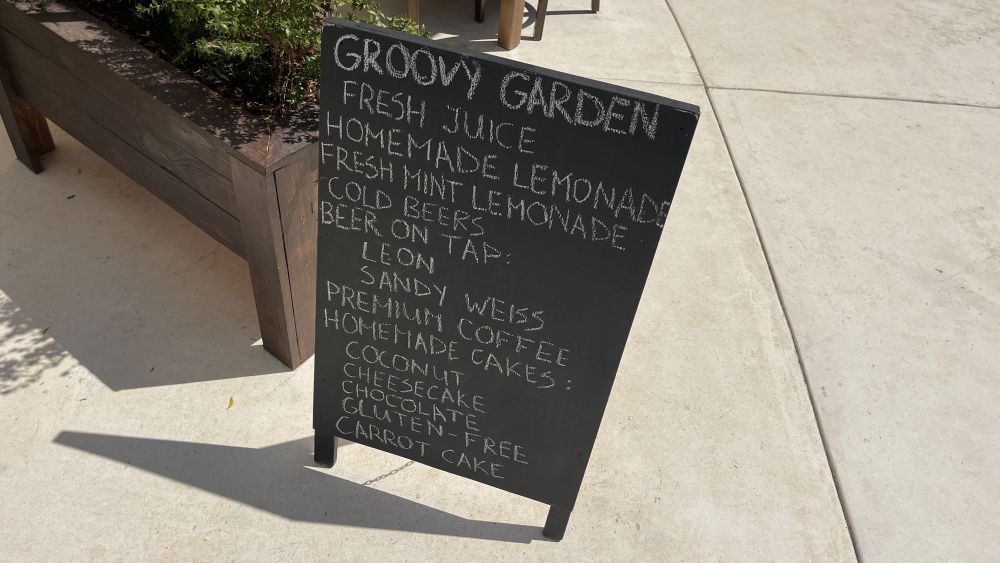 GROOVY GARDEN
FRESH JUICE
HOMEMADE LEMONADE
FRESH MINT LEMONADE
COLD BEERS
BEER ON TAP:
LEON
SANDY WEISS
PREMIUM COFFEE
HOMEMADE CAKES:
COCONUT
CHEESECAKE
CHOCOLATE
GLUTEN-FREE
CARROT CAKE